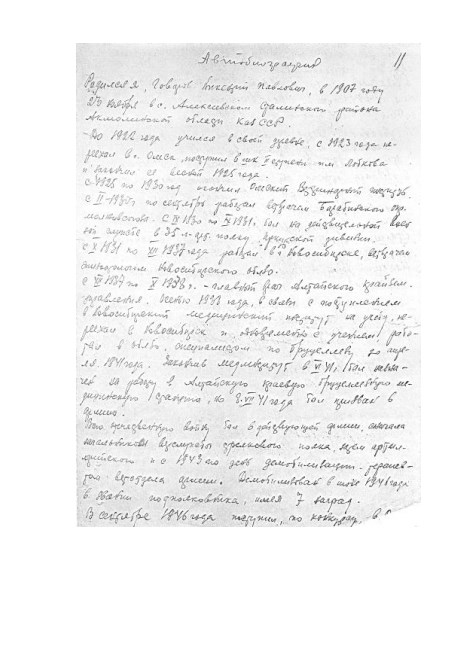 Автобиография 11
Родился я, Говоров Викентий Павлович, в 1907 году
ноября в с. Алексеевском Сталинского района
Акмолинской области КазССР.
До 1922 года учился в своей деревне, с 1923 года пе-
реехал в г. Омск, поступил в шк. II ступени им. Лобкова
и окончил ее весной 1925 года.
С 1925 по 1930 год окончил Омский Ветеринарный институт.
С II-1930 г. по сентябрь работал ветврачом Барабинского окр-
молживсоюза. С IX 1930 по X 1931 г. был на действительной воен-
ной службе в 35 м. арт. полку, Иркутской дивизии.
С X 1931 по VII 1937 года работал в г. Новосибирске, ветврачом
Новосибирского облзо.
С VII 1937 по X 1938 г. - главный врач Алтайского крайвет-
управления. Осенью 1938 года, в связи с поступлением
в Новосибирский медицинский институт на учебу, пе-
реехал в Новосибирск и одновременно с учением рабо-
тал в облзо, специалистом по бруцеллезу до апре-
ля 1941 года. Закончив мединститут в VI 41 г. был назна-
чен на работу в Алтайскую краевую бруцеллезную ме-
дицинскую станцию, но 8.VII 41 года был призван в
армию.
Всю отечественную войну был в действующей армии, сначала
начальником ветслужбы стрелкового полка, затем артил-
лерийского и с 1943 по день демобилизации - терапев-
том ветотдела армии. Демобилизован в июле 1946 года
в звании подполковника, имея 7 наград.
В сентябре 1946 года поступил, по конкурсу, в